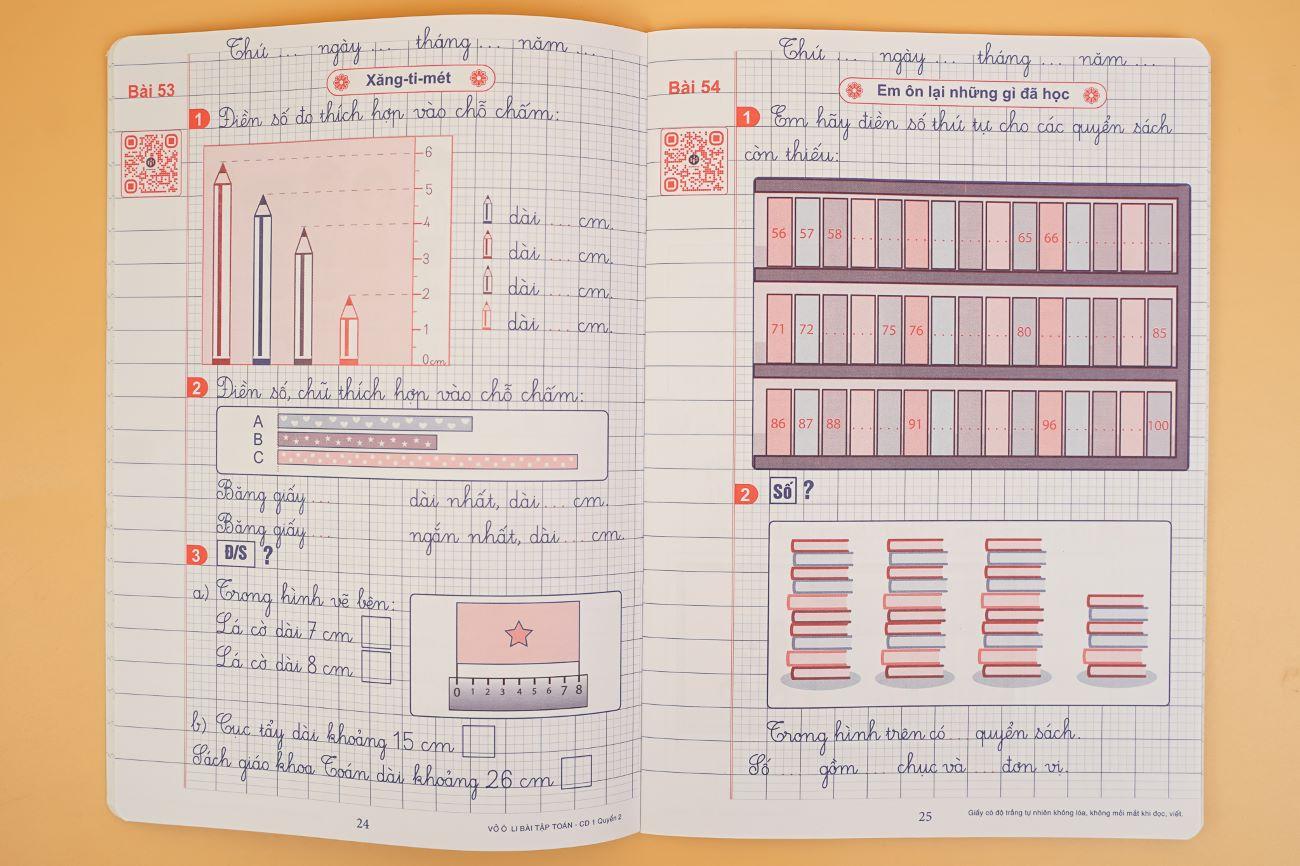 Thứ ... ngày ... tháng ... năm ...
Bài 53
Xăng-ti-mét
1 Điền số đo thích hợp vào chỗ chấm:
6
5
4
3
2
1
0cm
dài ... cm.
dài ... cm.
dài ... cm.
dài ... cm.
2 Điền số, chữ thích hợp vào chỗ chấm:
A
B
C
Băng giấy ... dài nhất, dài ... cm.
Băng giấy ... ngắn nhất, dài ... cm.
3 Đ/S ?
a) Trong hình vẽ bên:
Lá cờ dài 7 cm
Lá cờ dài 8 cm
0 1 2 3 4 5 6 7 8
b) Cục tẩy dài khoảng 15 cm
Sách giáo khoa Toán dài khoảng 26 cm
24
VỞ Ô LI BÀI TẬP TOÁN - CD 1 Quyển 2
Thứ ... ngày ... tháng ... năm ...
Bài 54
Em ôn lại những gì đã học
1 Em hãy điền số thứ tự cho các quyển sách
còn thiếu:
56 57 58 ... 65 66 ...
71 72 ... 75 76 ... 80 ... 85
86 87 88 ... 91 ... 96 ... 100
2 Số ?
Trong hình trên có ... quyển sách.
Số ... gồm ... chục và ... đơn vị.
25
Giấy có độ trắng tự nhiên không lóa, không mỏi mắt khi đọc, viết.